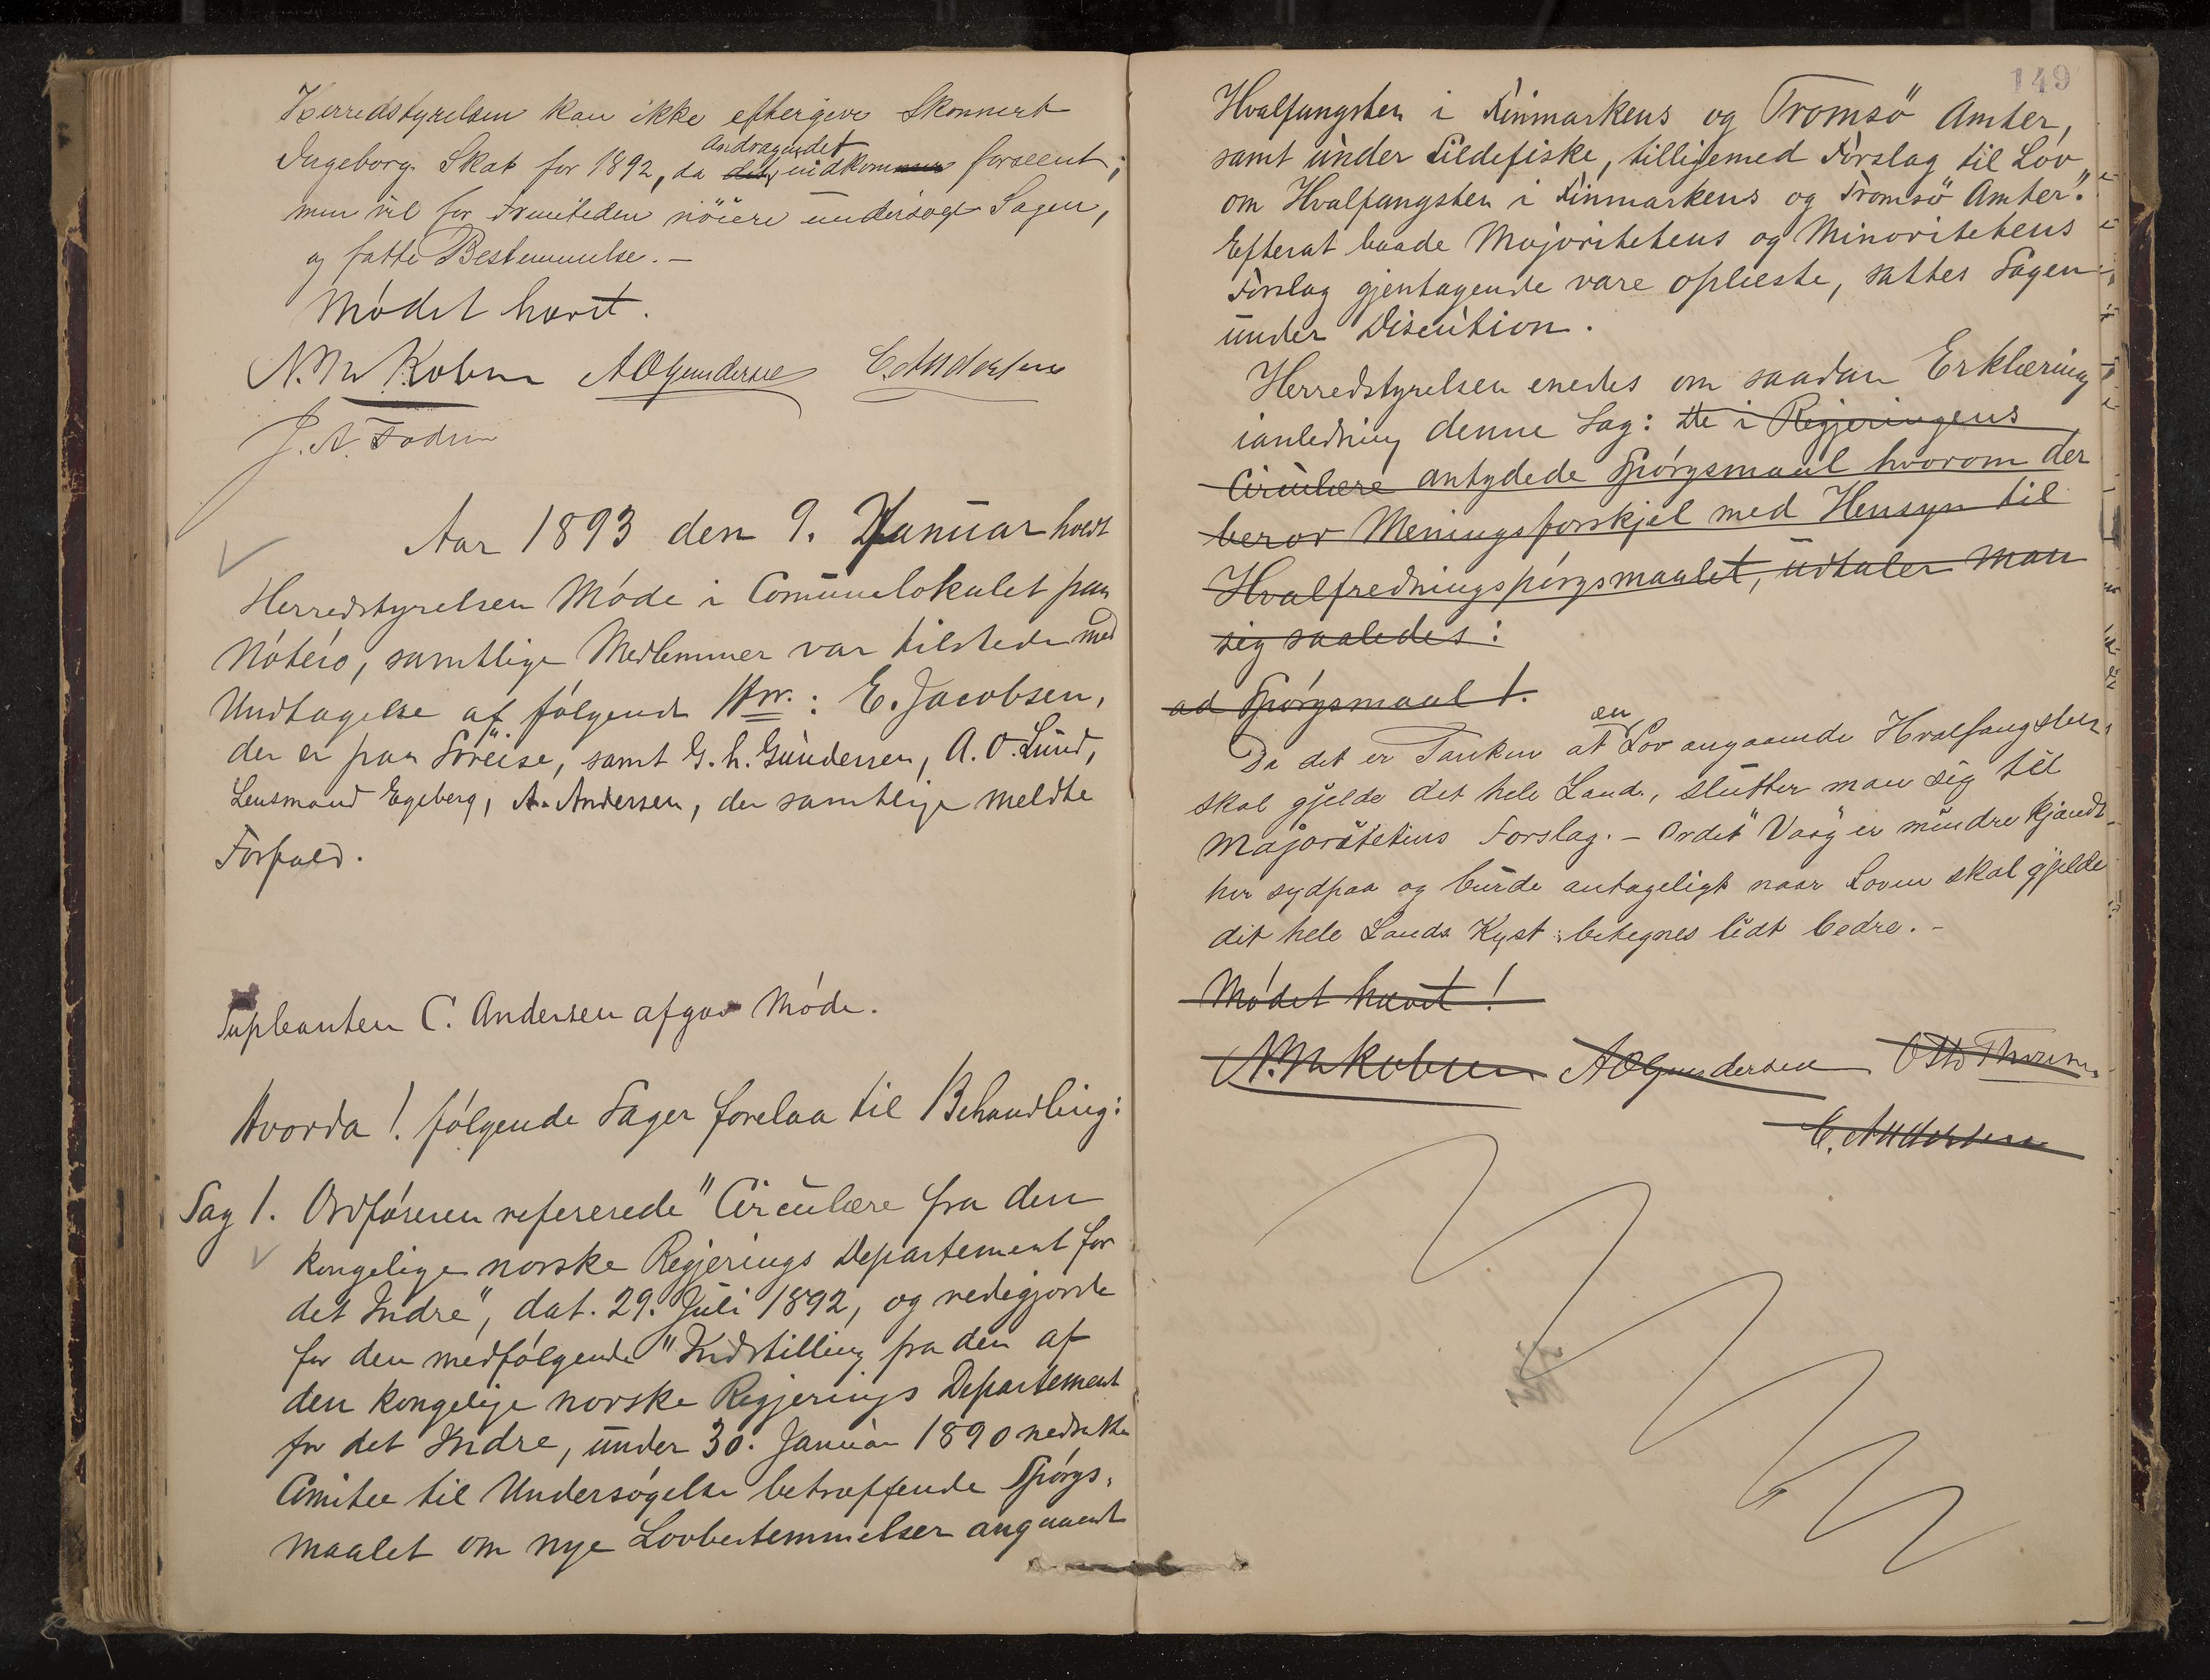 Herredstyrelsen kan ikke eftergive Skonnert
Ingeborgs Skat for 1892, da det Andragendet indkommer forseent;
men vil for Fremtiden nöiere undersøge Sagen,
og fatte Bestemmelse. –
Mødet hævet.
AOGundersen C. Andersen
Aar 1893 den 9. Januar holdt
Herredstyrelsen Møde i Comunelokalet paa
Nøterø, samtlige Medlemmer var tilstede med
Undtagelse af følgende Hrr.: E. Jacobsen,
der er paa Söreise, samt G. h. Gundersen, A. O. Lund,
Lensmand Egeberg, A. Andersen, der samtlige meldte
Forfald.
Supleanten C. Andersen afgav Møde.
Hvorda! følgende Sager forelaa til Behandling:
Sag 1. Ordføreren refererede "Circulære fra den
kongelige norske Regjerings Departement for
det Indre", dat. 29. Juli 1892, og redegjorde
for den medfølgende "Indstilling fra den af
den kongelige norske Regjerings Departement
for det Indre, under 30. Januar 1890 nedsatte
Comitee til Undersøgelse betræffende Spørgs-
maalet om nye Lovbestemmelser angaaende
149
Hvalfangsten i Finmarkens og Tromsö Amter,
samt under Sildefiske, tilligemed Forslag til Lov
om Hvalfangsten i Finmarkens og Tromsö Amter."
Efterat baade Majoritetens og Minoritetens
Forslag gjentagende vare oplæste, sattes Sagen
under Discution.
Herredstyrelsen enedes om saadan Erklæring
ianledning denne Sag: De i Regjeringens
Circulære antydede Spørgsmaal hvorom der
herøv Meningsforskjel med Hensyn til
Hvalfredningspørgsmaalet, udtaler man
sig saaledes:
ad Spørgsmaal 1.
Da det er Tanken at en Lov angaaende Hvalfangsten
skal gjelde det hele Land, slutter man sig til
Majoritetens Forslag. – Ordet "Vaag" er mindre kjendt
her sydpaa og burde antageligt naar Loven skal gjelde
det hele Lands Kyst betegnes lidt bedre. –
Mødet hævet!
AOGundersen Otto Thorsen
C. Andersen